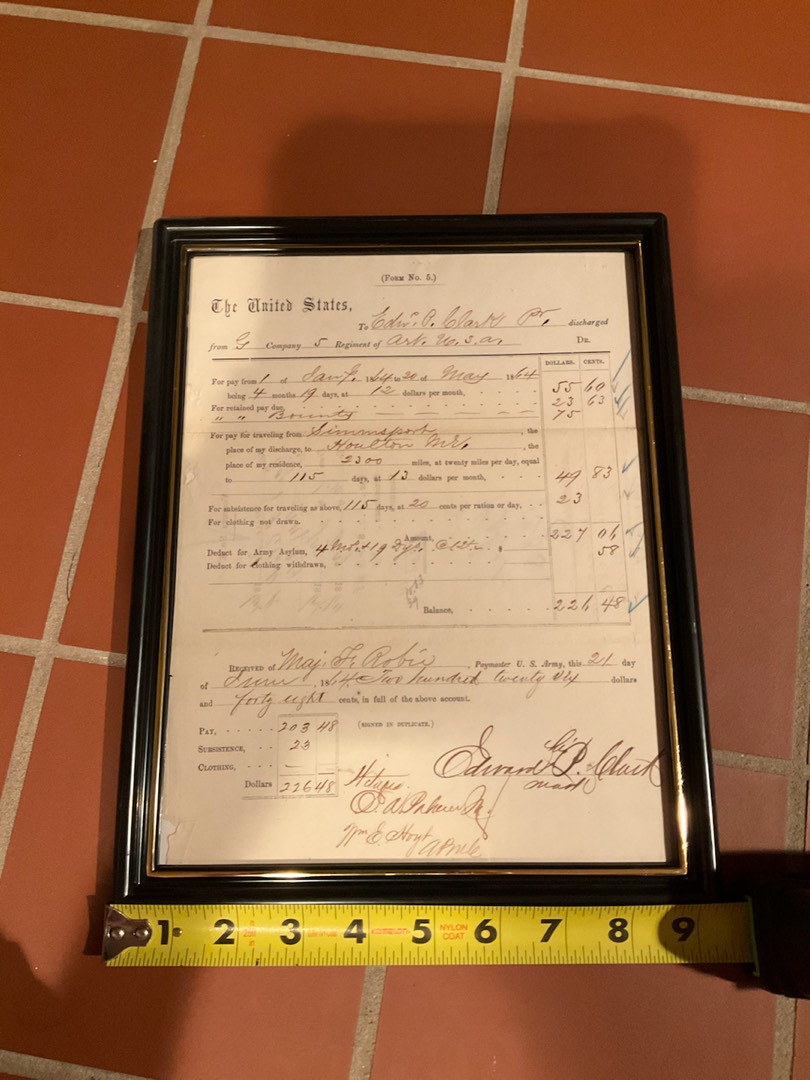 (Form No. 5.)
The United States,
To Edw. P. Clark Pr. discharged
from G Company 5 Regiment of Art. U.S.A. Dr.
DOLLARS. CENTS.
For pay from 1 of Jany. 1864 to 20 of May 1864
being 4 months 19 days, at 12 dollars per month, 55 60
For retained pay due, 23 63
" " Bounty 75
For pay for traveling from Simmsport, the
place of my discharge, to Houlton Me., the
place of my residence, 2300 miles, at twenty miles per day, equal
to 115 days, at 13 dollars per month, 49 83
For subsistence for traveling as above, 115 days, at 20 cents per ration or day, 23
For clothing not drawn.
Amount, 227 06
Deduct for Army Asylum, 4 Mos. + 19 Dys. $ 58
Deduct for clothing withdrawn,
Balance, 226 48
Received of Maj. F. Robie, Paymaster U. S. Army, this 21 day
of June, 1864, Two hundred twenty six dollars
and forty eight cents, in full of the above account.
(SIGNED IN DUPLICATE.)
Pay, 203 48
Subsistence, 23
Clothing,
Dollars 226 48
Edward P. Clark
his
mark
Wm E. Hoyt
1 2 3 4 5 6 7 8 9
KOMELON
NYLON
COAT